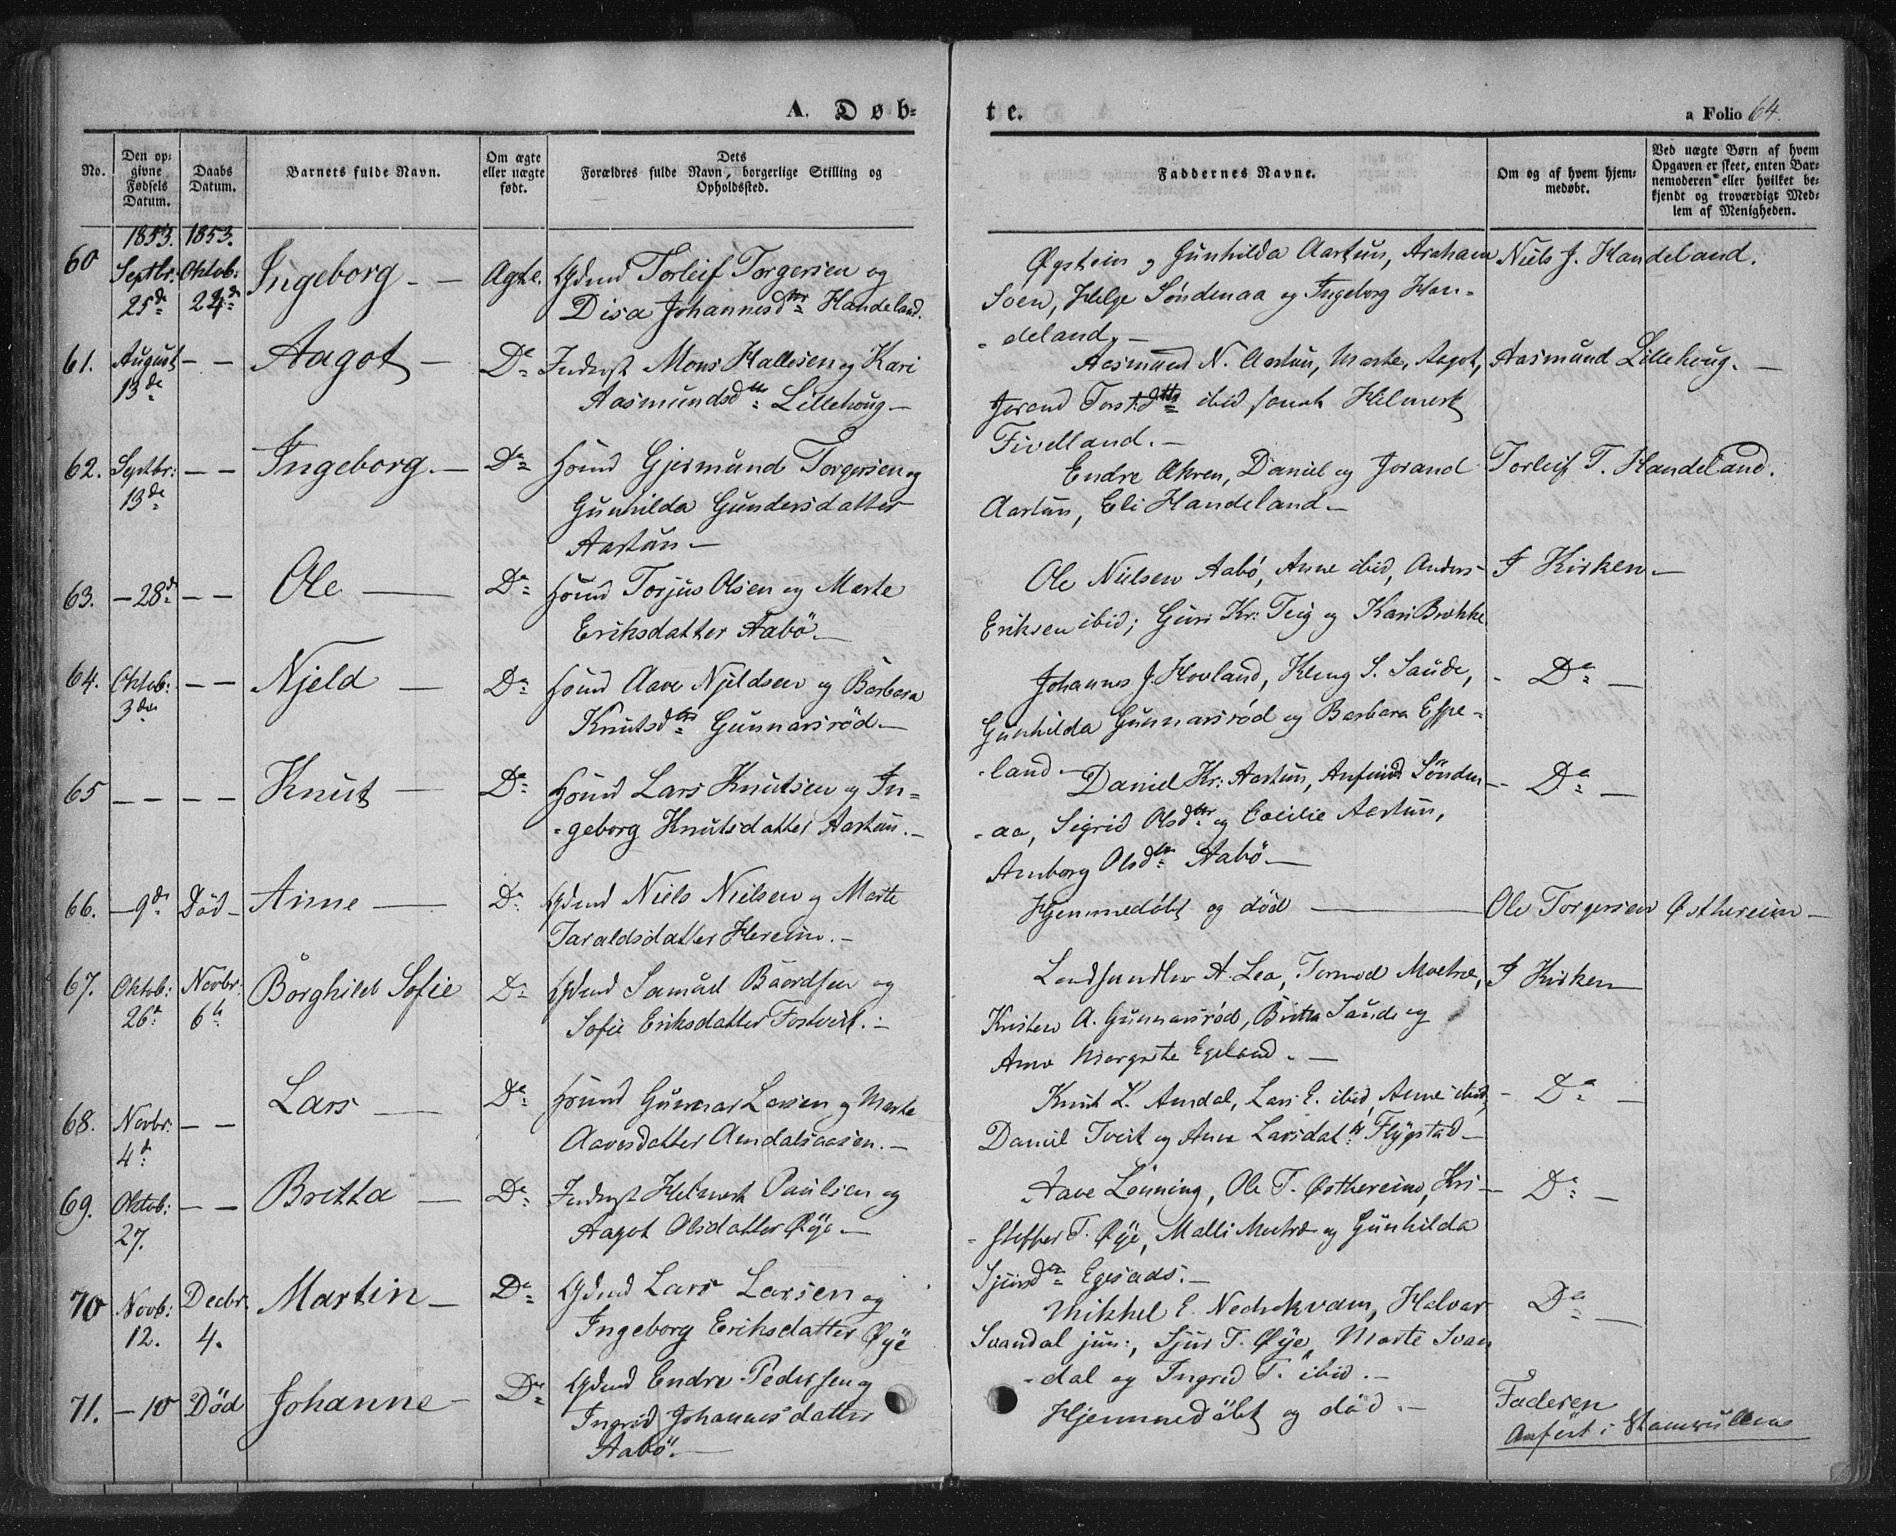 A. Døb-
te.
a Folio 64.
No.
Den op-
givne
Fødsels
Datum.
Daabs
Datum.
Barnets fulde Navn.
Om ægte
eller uægte
født.
Dets
Forældres fulde Navn, borgerlige Stilling og
Opholdssted.
Faddernes Navne.
Om og af hvem hjem-
medøbt.
Ved uægte Børn af hvem
Opgaven er skeet, enten Bar-
nemoderen eller hvilket be-
kjendt og troværdigt Med-
lem af Menigheden.
1853. 1853.
60 Septbr: 25de Oktob: 24de Ingeborg - Ægte. Gdmd Torleif Torgersen og
Disa Johannesdtr Handeland.
Øystein og Gunhilda Aartun,
Soen, Helge Søndenaa og Ingeborg Han-
deland. -
Niels J. Handeland.
61. August 13de - - Aagot - Do Inderst Mons Hallesen og Kari
Aasmundsdtr Lillehoug -
Aasmund N. Aartun, Marte, Aagot,
Jorand ibid samt Helmert
Fivelland. -
Aasmund Lillehoug. -
62. Septbr: 13de - - Ingeborg. - Do Hsmd Gjermund Torgersen og
Gunhilda Gundersdatter
Aartun -
Endre Økren, Daniel og Jorand
Aartun, Eli Handeland. -
Torleif T. Handeland.
63. - 28de - - Ole - Do Hsmd Torjus Olsen og Marte
Eriksdatter Aabö -
Ole Nielsen Aabö, Anne ibid, Anders
Eriksen ibid; Guri Kr: Teig og Kari Brokke
I Kirken -
64. Oktob: 3die - - Njeld - Do Hsmd Aave Njeldsen og Barbara
Knutsdtr Gunnarsröd -
Johannes J. Hovland, Kleng S. Saude,
Gunhilda Gunnarsröd og Barbara Espe-
land -
- Do -
65 - - - - Knut - Do Hsmd Lars Knutsen og In-
geborg Knutsdatter Aartun. -
Daniel Kr: Aartun, Anfind Sønden-
aa, Sigrid Olsdtr og Cecilie Aartun,
Amborg Olsdtr Aabö -
- Do -
66. - 9de Död - Anne - Do Gdmd Niels Nielsen og Marte
Taraldsdatter Hereim. -
Hjemmedöbt og död -
Ole Torgersen Østhereim -
67. Oktob: 26de Novbr: 6te Borghild Sofie Do Gdmd Samuel Baardsen og
Sofie Eriksdatter Fostveit. -
Landhandler A. Lea, Tormod Moetræ,
Kristen A. Gunnarsröd, Britta Saude og
Ane Margrete Egeland. -
I Kirken
68. Novbr: 4de - - Lars - Do Hsmd Gunnar Larsen og Marte
Aavesdatter Amdalsaasen. -
Knut L. Amdal, Lars E. ibid, Anne ibid,
Daniel Tveit og Anne Larsdatr Flygstad -
- Do -
69. Oktob: 27. - - Britta - Do Inderst Helmert Paulsen og
Aagot Olsdatter Øye -
Aave Lönning, Ole T. Østhereim, Kri-
stoffer T. Øye, Malli Moetræ og Gunhilda
Sjursdtr Egesads. -
- Do -
70 Novb: 12. Decbr 4. Martin - Do Gdmd Lars Larsen og
Ingeborg Eriksdatter Øye
Mikkel E. Nedrekvam, Halvar
Svandal jun:, Sjur T. Øye, Marte Svan
dal og Ingrid T. ibid. -
Do -
71. - 10 Död Johanne - Do Gdmd Endre Pedersen og
Ingrid Johannesdatter
Aabö. -
Hjemmedöbt og död. -
Faderen
Anfört i Stamrullerne